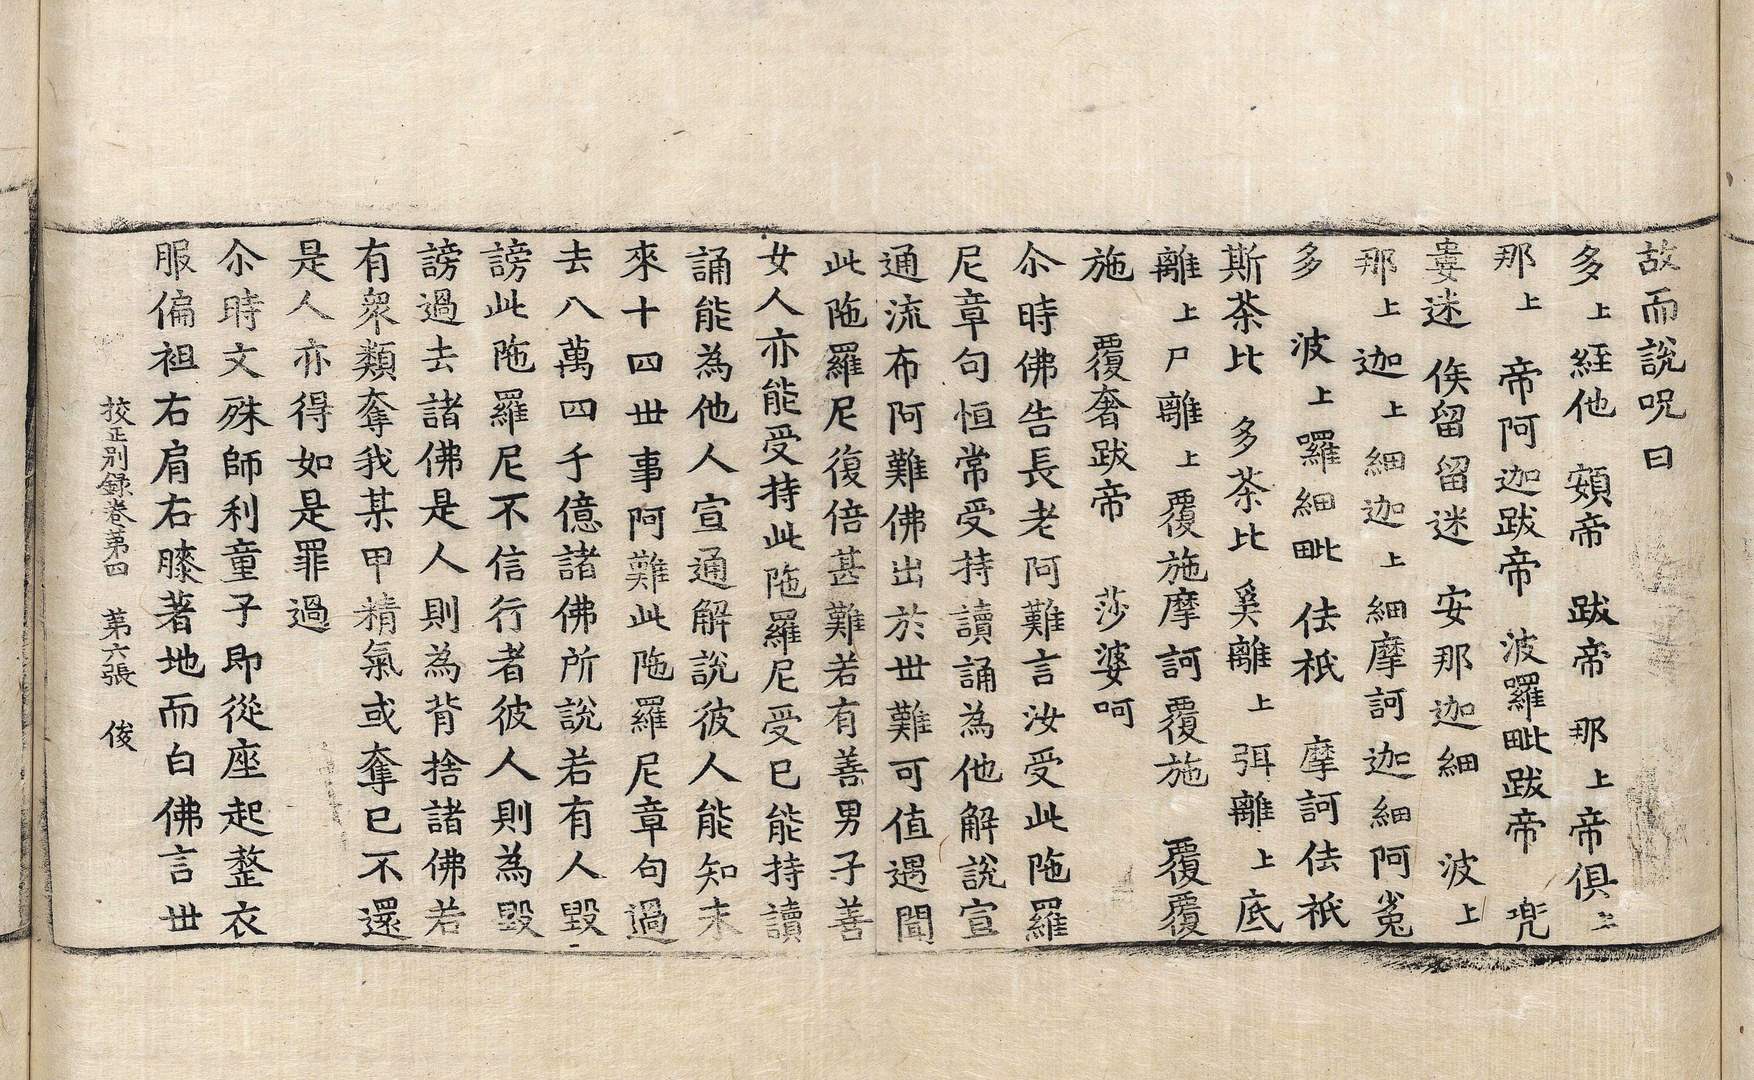 故而說呪曰
多上絰他　頞帝　跋帝　那上帝俱上
那上　帝阿迦跋帝　波囉毗跋帝　兜
婁迷　俟留留迷　安那迦細　波上
那上迦上細迦上細摩訶迦細阿㝹
多　波上囉細毗　佉祇　摩訶佉祇
斯荼比　多荼比　奚離上　弭離上底
離上尸離上覆施摩訶覆施　覆覆
施　覆奢跋帝　莎婆呵
尒時佛告長老阿難言汝受此陁羅
尼章句恒常受持讀誦為他解說宣
通流布阿難佛出於世難可值遇聞
此陁羅尼復倍甚難若有善男子善
女人亦能受持此陁羅尼受已能持讀
誦能為他人宣通解說彼人能知未
來十四世事阿難此陁羅尼章句過
去八萬四千億諸佛所說若有人毀
謗此陁羅尼不信行者彼人則為毀
謗過去諸佛是人則為背捨諸佛若
有衆類奪我某甲精氣或奪已不還
是人亦得如是罪過
尒時文殊師利童子即從座起整衣
服偏袒右肩右膝著地而白佛言世
挍正別錄卷第四　第六張　俊